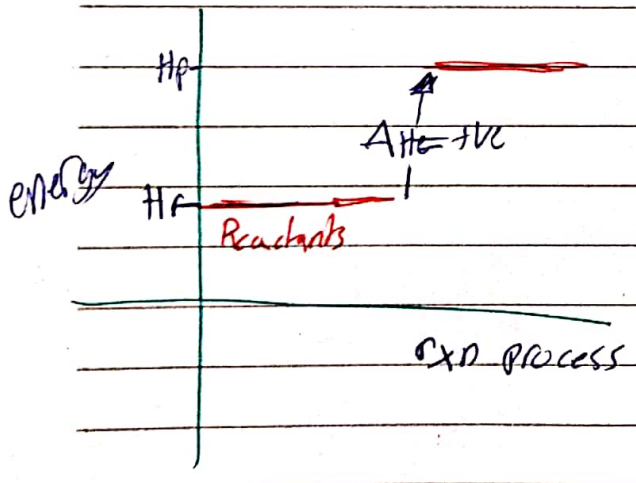 Hp
ΔH = +ve
energy
Hr
Reactants
rxn process